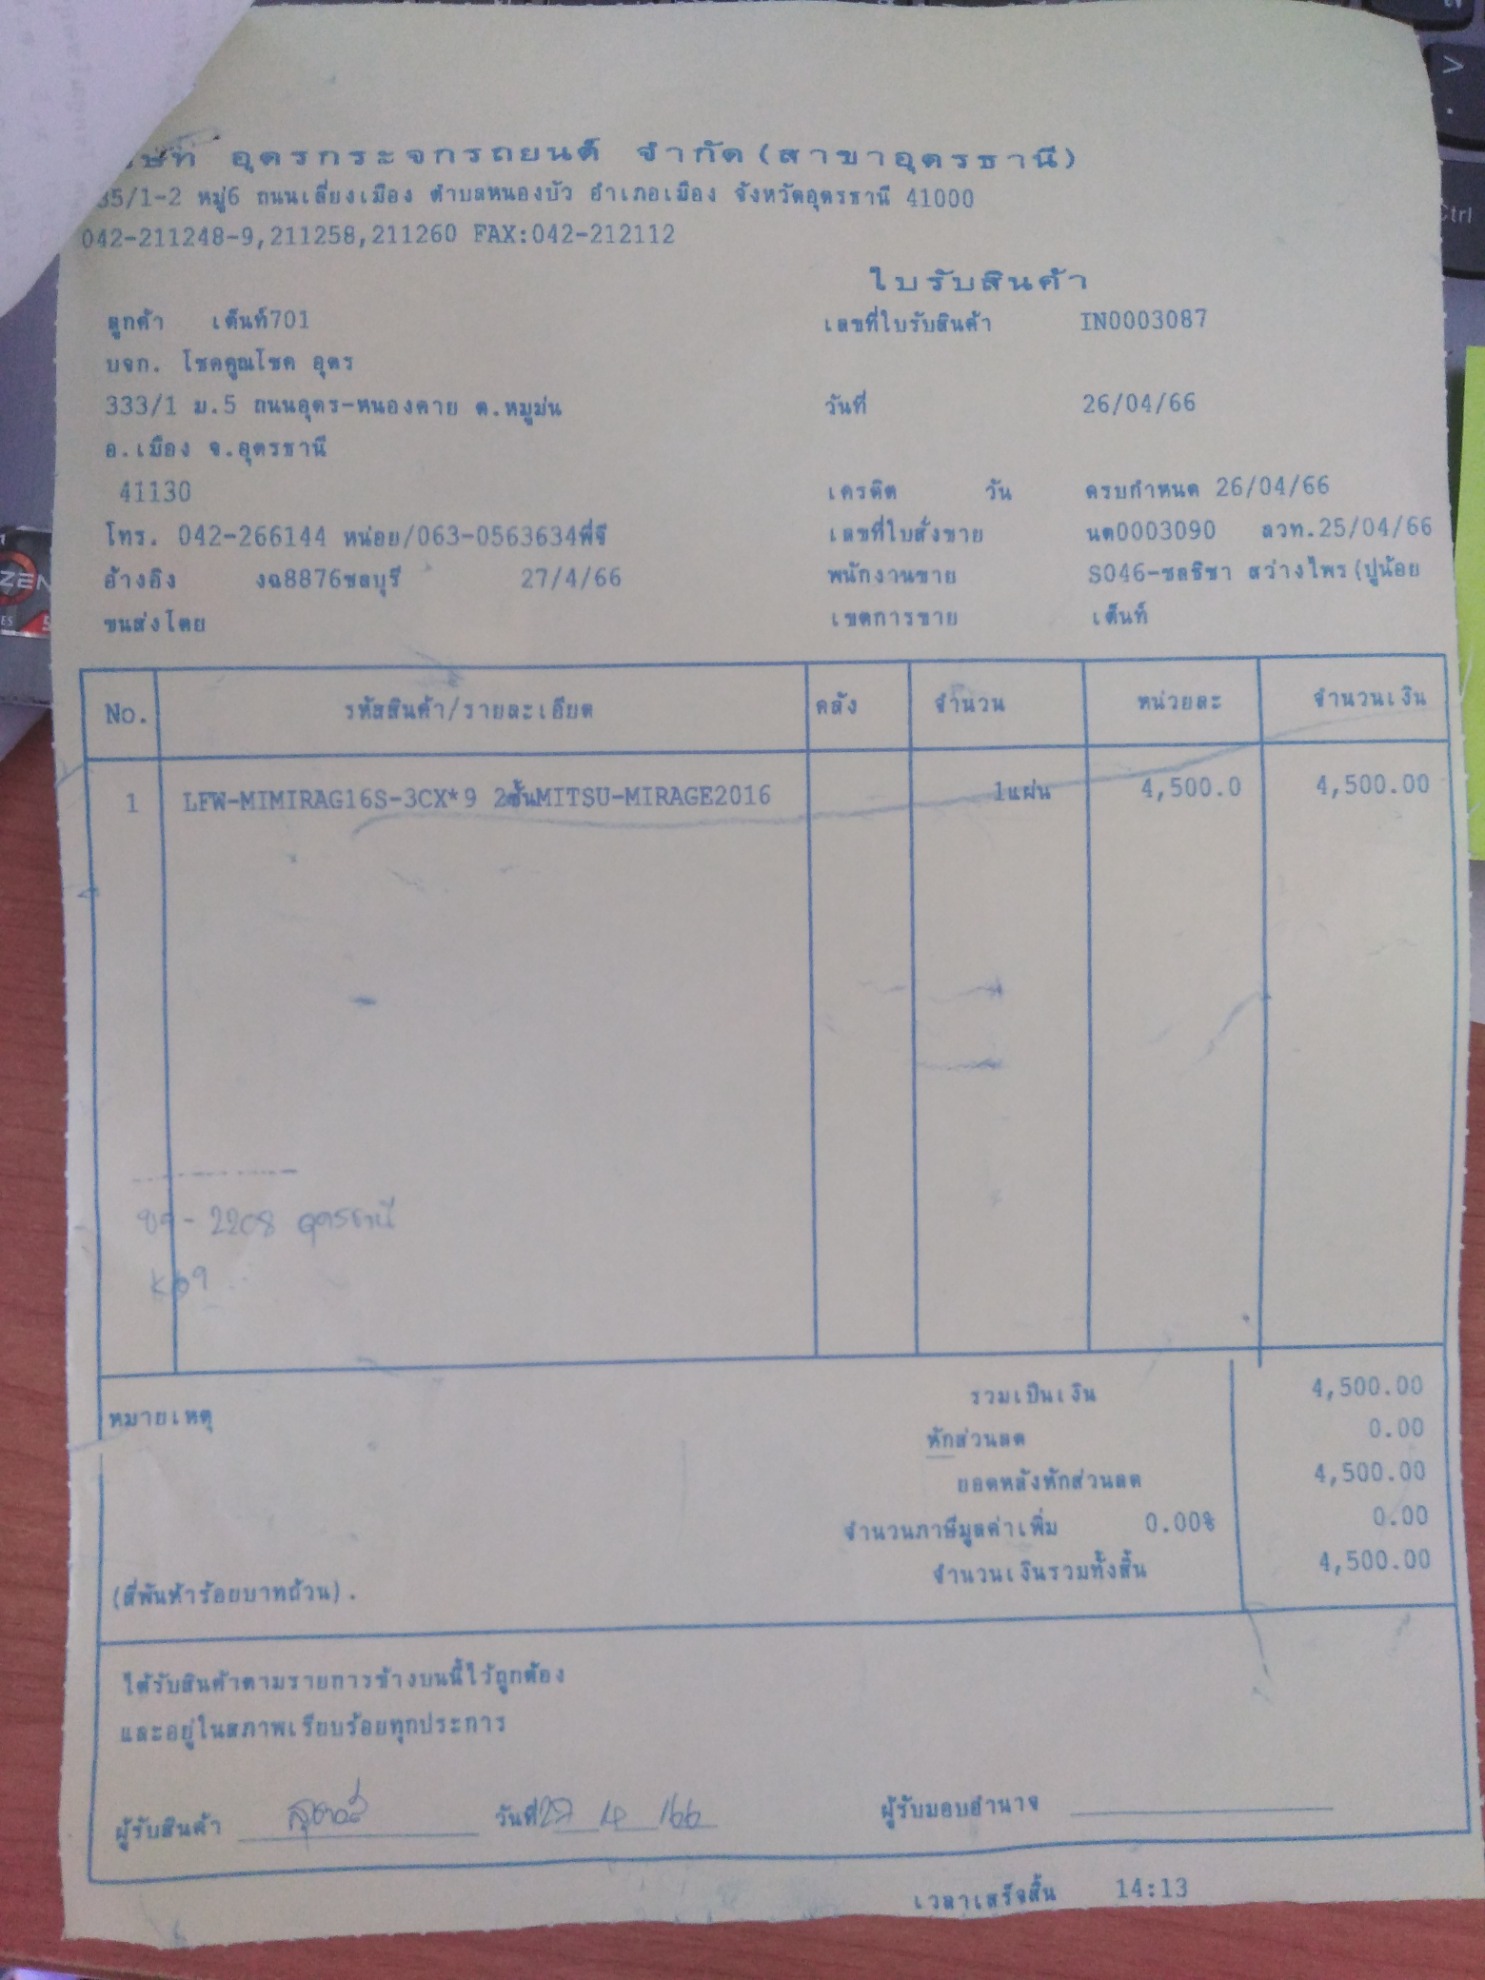 อุดรกระจกรถยนต์ จำกัด(สาขาอุดรธานี)
35/1-2 หมู่6 ถนนเลี่ยงเมือง ตำบลหนองบัว อำเภอเมือง จังหวัดอุดรธานี 41000
042-211248-9,211258,211260 FAX:042-212112
ใบรับสินค้า
ลูกค้า เต็นท์701 เลขที่ใบรับสินค้า IN0003087
บจก. โชคคูณโชค อุดร
333/1 ม.5 ถนนอุดร-หนองคาย ต.หมูม่น วันที่ 26/04/66
อ.เมือง จ.อุดรธานี
41130 เครดิต วัน ครบกำหนด 26/04/66
โทร. 042-266144 หน่อย/063-0563634พี่จี เลขที่ใบสั่งขาย นด0003090 ลวท.25/04/66
อ้างอิง งฉ8876ชลบุรี 27/4/66 พนักงานขาย S046-ชลธิชา สว่างไพร(ปูน้อย
ขนส่งโดย เขตการขาย เต็นท์
No. รหัสสินค้า/รายละเอียด คลัง จำนวน หน่วยละ จำนวนเงิน
1 LFW-MIMIRAG16S-3CX*9 2ชั้นMITSU-MIRAGE2016 1แผ่น 4,500.0 4,500.00
2208 อุดรธานี
หมายเหตุ รวมเป็นเงิน 4,500.00
หักส่วนลด 0.00
ยอดหลังหักส่วนลด 4,500.00
จำนวนภาษีมูลค่าเพิ่ม 0.00% 0.00
(สี่พันห้าร้อยบาทถ้วน). จำนวนเงินรวมทั้งสิ้น 4,500.00
ได้รับสินค้าตามรายการข้างบนนี้ไว้ถูกต้อง
และอยู่ในสภาพเรียบร้อยทุกประการ
ผู้รับสินค้า วันที่ 27 4 /66 ผู้รับมอบอำนาจ
เวลาเสร็จสิ้น 14:13